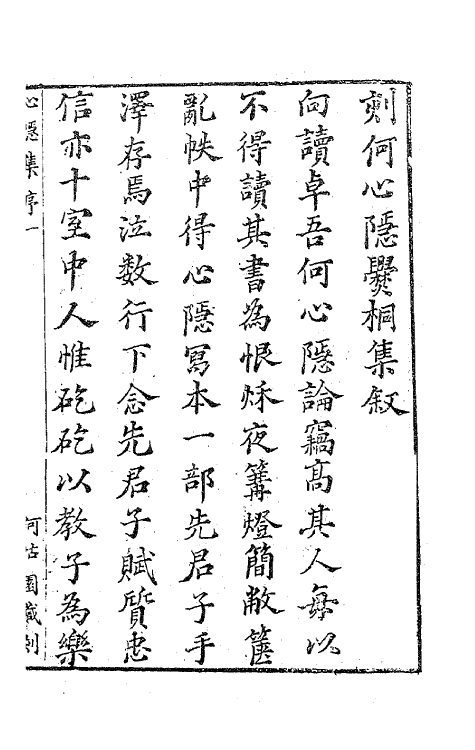 刻何心隱爨桐集敘
向讀卓吾何心隱論竊高其人每以
不得讀其書為恨秌夜篝燈簡敝篋
亂帙中得心隱寫本一部先君子手
澤存焉泣数行下念先君子賦質忠
信亦十室中人惟矻矻以教子為樂
心隱集序一
何古園藏刻